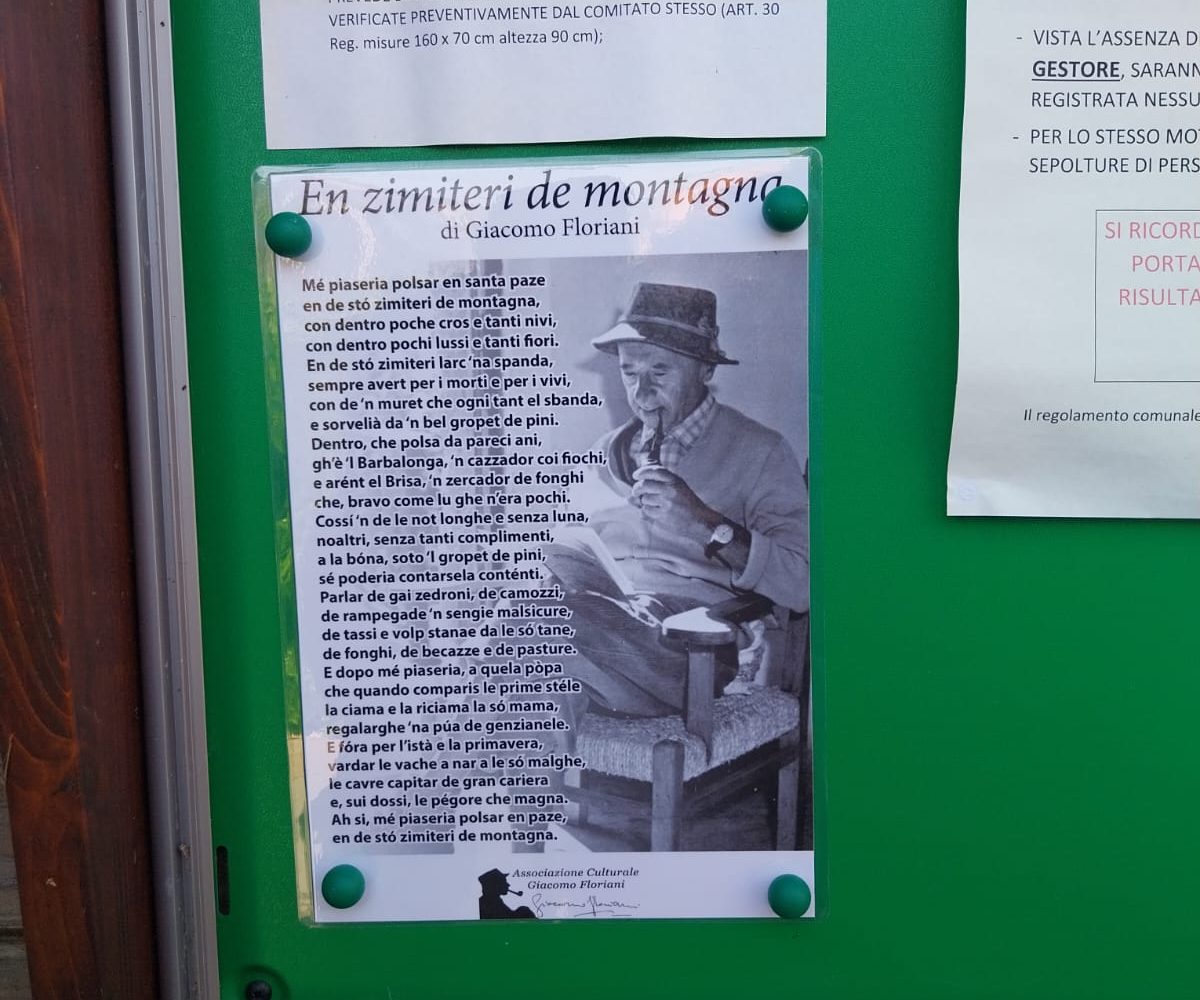 VERIFICATE PREVENTIVAMENTE DAL COMITATO STESSO (ART. 30
Reg. misure 160 x 70 cm altezza 90 cm);
En zimiteri de montagna
di Giacomo Floriani
Mé piaseria polsar en santa paze
en de stó zimiteri de montagna,
con dentro poche cros e tanti nivi,
con dentro pochi lussi e tanti fiori.
En de stó zimiteri larc ‘na spanda,
sempre avert per i morti e per i vivi,
con de ‘n muret che ogni tant el sbanda,
e sorvelià da ‘n bel gropet de pini.
Dentro, che polsa da pareci ani,
gh’è ‘l Barbalonga, ‘n cazzador coi fiochi,
e arént el Brisa, ‘n zercador de fonghi
che, bravo come lu ghe n’era pochi.
Cossí ‘n de le not longhe e senza luna,
noaltri, senza tanti complimenti,
a la bóna, soto ‘l gropet de pini,
sé poderia contarsela conténti.
Parlar de gai zedroni, de camozzi,
de rampegade ‘n sengie malsicure,
de tassi e volp stanae da le só tane,
de fonghi, de becazze e de pasture.
E dopo mé piaseria, a quela pòpa
che quando comparis le prime stéle
la ciama e la riciama la só mama,
regalarghe ‘na púa de genzianele.
E fóra per l’istà e la primavera,
vardar le vache a nar a le só malghe,
le cavre capitar de gran cariera
e, sui dossi, le pégore che magna.
Ah si, mé piaseria polsar en paze,
en de stó zimiteri de montagna.
Associazione Culturale
Giacomo Floriani
Giacomo Floriani
- VISTA L’ASSENZA D
GESTORE, SARANN
REGISTRATA NESSU
- PER LO STESSO MO
SEPOLTURE DI PERS
SI RICORD
PORTA
RISULTA
Il regolamento comunale